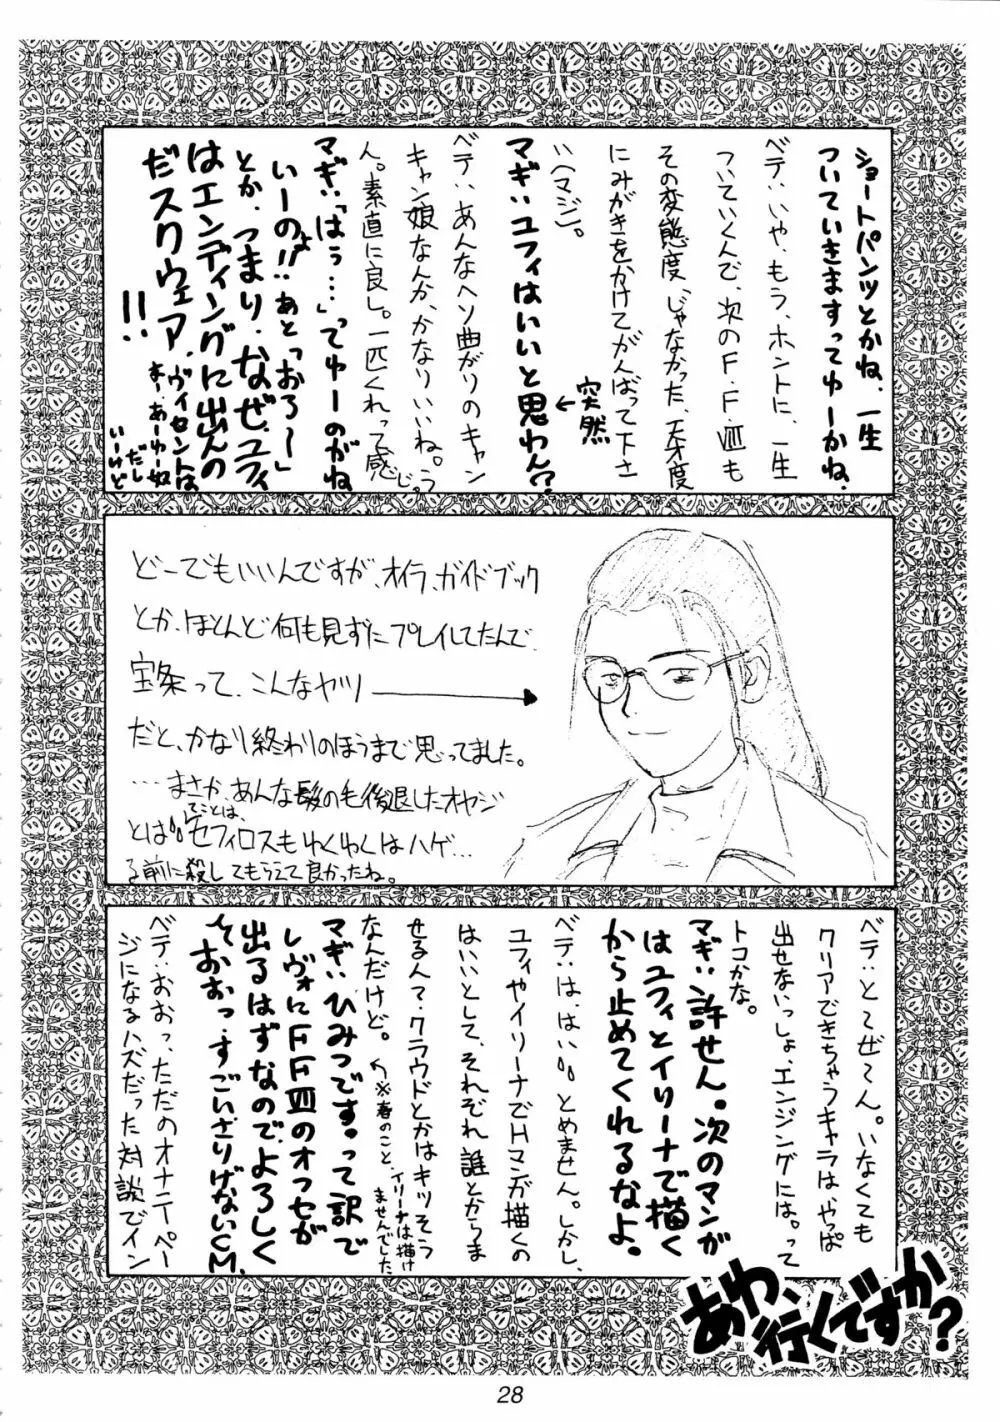 ショートパンツとかね、一生
ついていきますってゆーかね.
ベテ:いや、もう、ホントに、一生
ついていくんで、次のF.F.Ⅷも
その変態度、じゃなかった、天才度
にみがきをかけてがんばって下さ
い(マジ)。
マギ:ユフィはいいと思わん?
←突然
ベテ:あんなヘソ曲がりのキャン
キャン娘なんか、かなりいいね。う
ん。素直に良し。一匹くれって感じ。
マギ:「はぅ…」ってゆーのがね
いーのよ!!あと「おろ〜」
とか、つまり、なぜ、ユフィ
はエンディングに出んの
だスクウェア!!
ヴィンセントは
まー、あーゆー奴
だし
いーけど
どーでもいいんですが、オイラ、ガイドブック
とか、ほとんど何も見ずにプレイしてたんで、
宝条って、こんなヤツ
だと、かなり終わりのほうまで思ってました。
…まさか、あんな髪の毛後退したオヤジ
とは。。てことは、セフィロスもゆくゆくはハゲ…
る前に殺してもらえて良かったね。
ベテ:とーぜーん。いなくても
クリアできちゃうキャラは、やっぱ
出せないっしょ、エンジングには。って
トコかな。
マギ:許せん。次のマンガ
はユフィとイリーナで描く
から止めてくれるなよ。
ベテ:は、はい。。とめません。しかし、
ユフィやイリーナでHマンガ描くの
はいいとして、それぞれ誰とからま
せるん?クラウドとかはキツそう
なんだけど。
※春のこと、イリーナは描け
ませんでした。
マギ:ひみつです。って訳で
レヴォにFFⅦのオフセが
出るはずなのでよろしく
っておおっ、すごいさりげないCM.
ベテ:おおっ、ただのオナニーペー
ジになるハズだった対談でイン
あわ、行くですか?
28